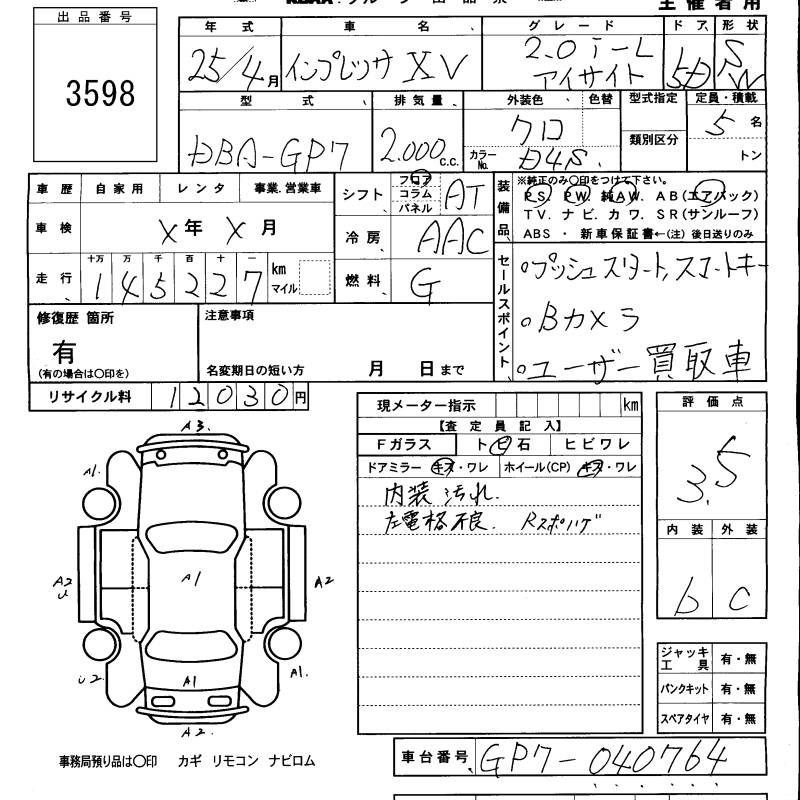 主催者用
出品番号
3598
年式 車名 グレード ドア 形状
25/4月 インプレッサ XV 2.0i-L アイサイト 5D S/W
型式 排気量 外装色 色替 型式指定 定員・積載
類別区分
DBA-GP7 2.000 c.c. クロ カラーNo. D4S. 5名
トン
車歴 自家用 レンタ 事業.営業車
シフト フロア コラム パネル AT
装備品 ※純正のみ○印をつけて下さい。
PS. PW. 純AW. AB(エアバック)
TV. ナビ. カワ. SR(サンルーフ)
ABS ・ 新車保証書←(注) 後日送りのみ
車検 X年 X月
冷房 AAC
走行 十万 万 千 百 十 一
145227 km マイル
燃料 G
セールスポイント
○プッシュスタート,スマートキー
○Bカメラ
○ユーザー買取車
修復歴 箇所
有
(有の場合は○印を)
注意事項
名変期日の短い方 月 日まで
リサイクル料 12030円
現メーター指示 km
【査定員記入】
Fガラス トビ石 ヒビワレ
ドアミラー キズ・ワレ ホイール(CP) キズ・ワレ
内装汚れ.
左電格不良. Rスポハゲ
評価点
3.5
内装 外装
b c
ジャッキ工具 有・無
パンクキット 有・無
スペアタイヤ 有・無
A3.
A1.
A2
U
A1
A2
U2
A1
A1.
A2.
事務局預り品は○印 カギ リモコン ナビロム
車台番号 GP7-040764